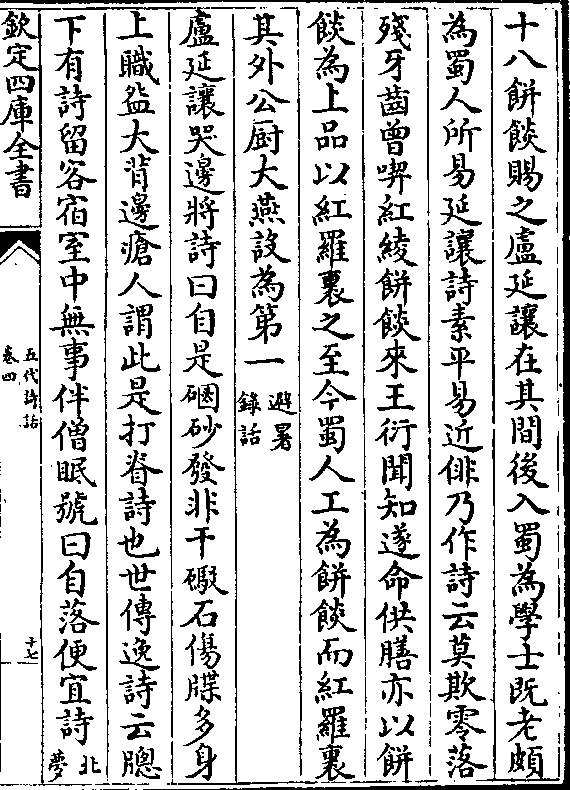 十八餅餤賜之盧延讓在其間後入蜀為學士既老頗
為蜀人所易延讓詩素平易近俳乃作詩云莫欺零落
殘牙齒曾喫紅綾餅餤來王衍聞知遂命供膳亦以餅
餤為上品以紅羅裹之至今蜀人工為餅餤而紅羅裹
其外公厨大燕設為第一避暑錄話
盧延讓哭邊將詩曰自是硇砂發非干礮石傷牒多身
上職盌大背邊瘡人謂此是打脊詩也世傳逸詩云牕
下有詩留客宿室中無事伴僧眠號曰自落便宜詩北夢
欽定四庫全書
五代詩話
卷四
十七